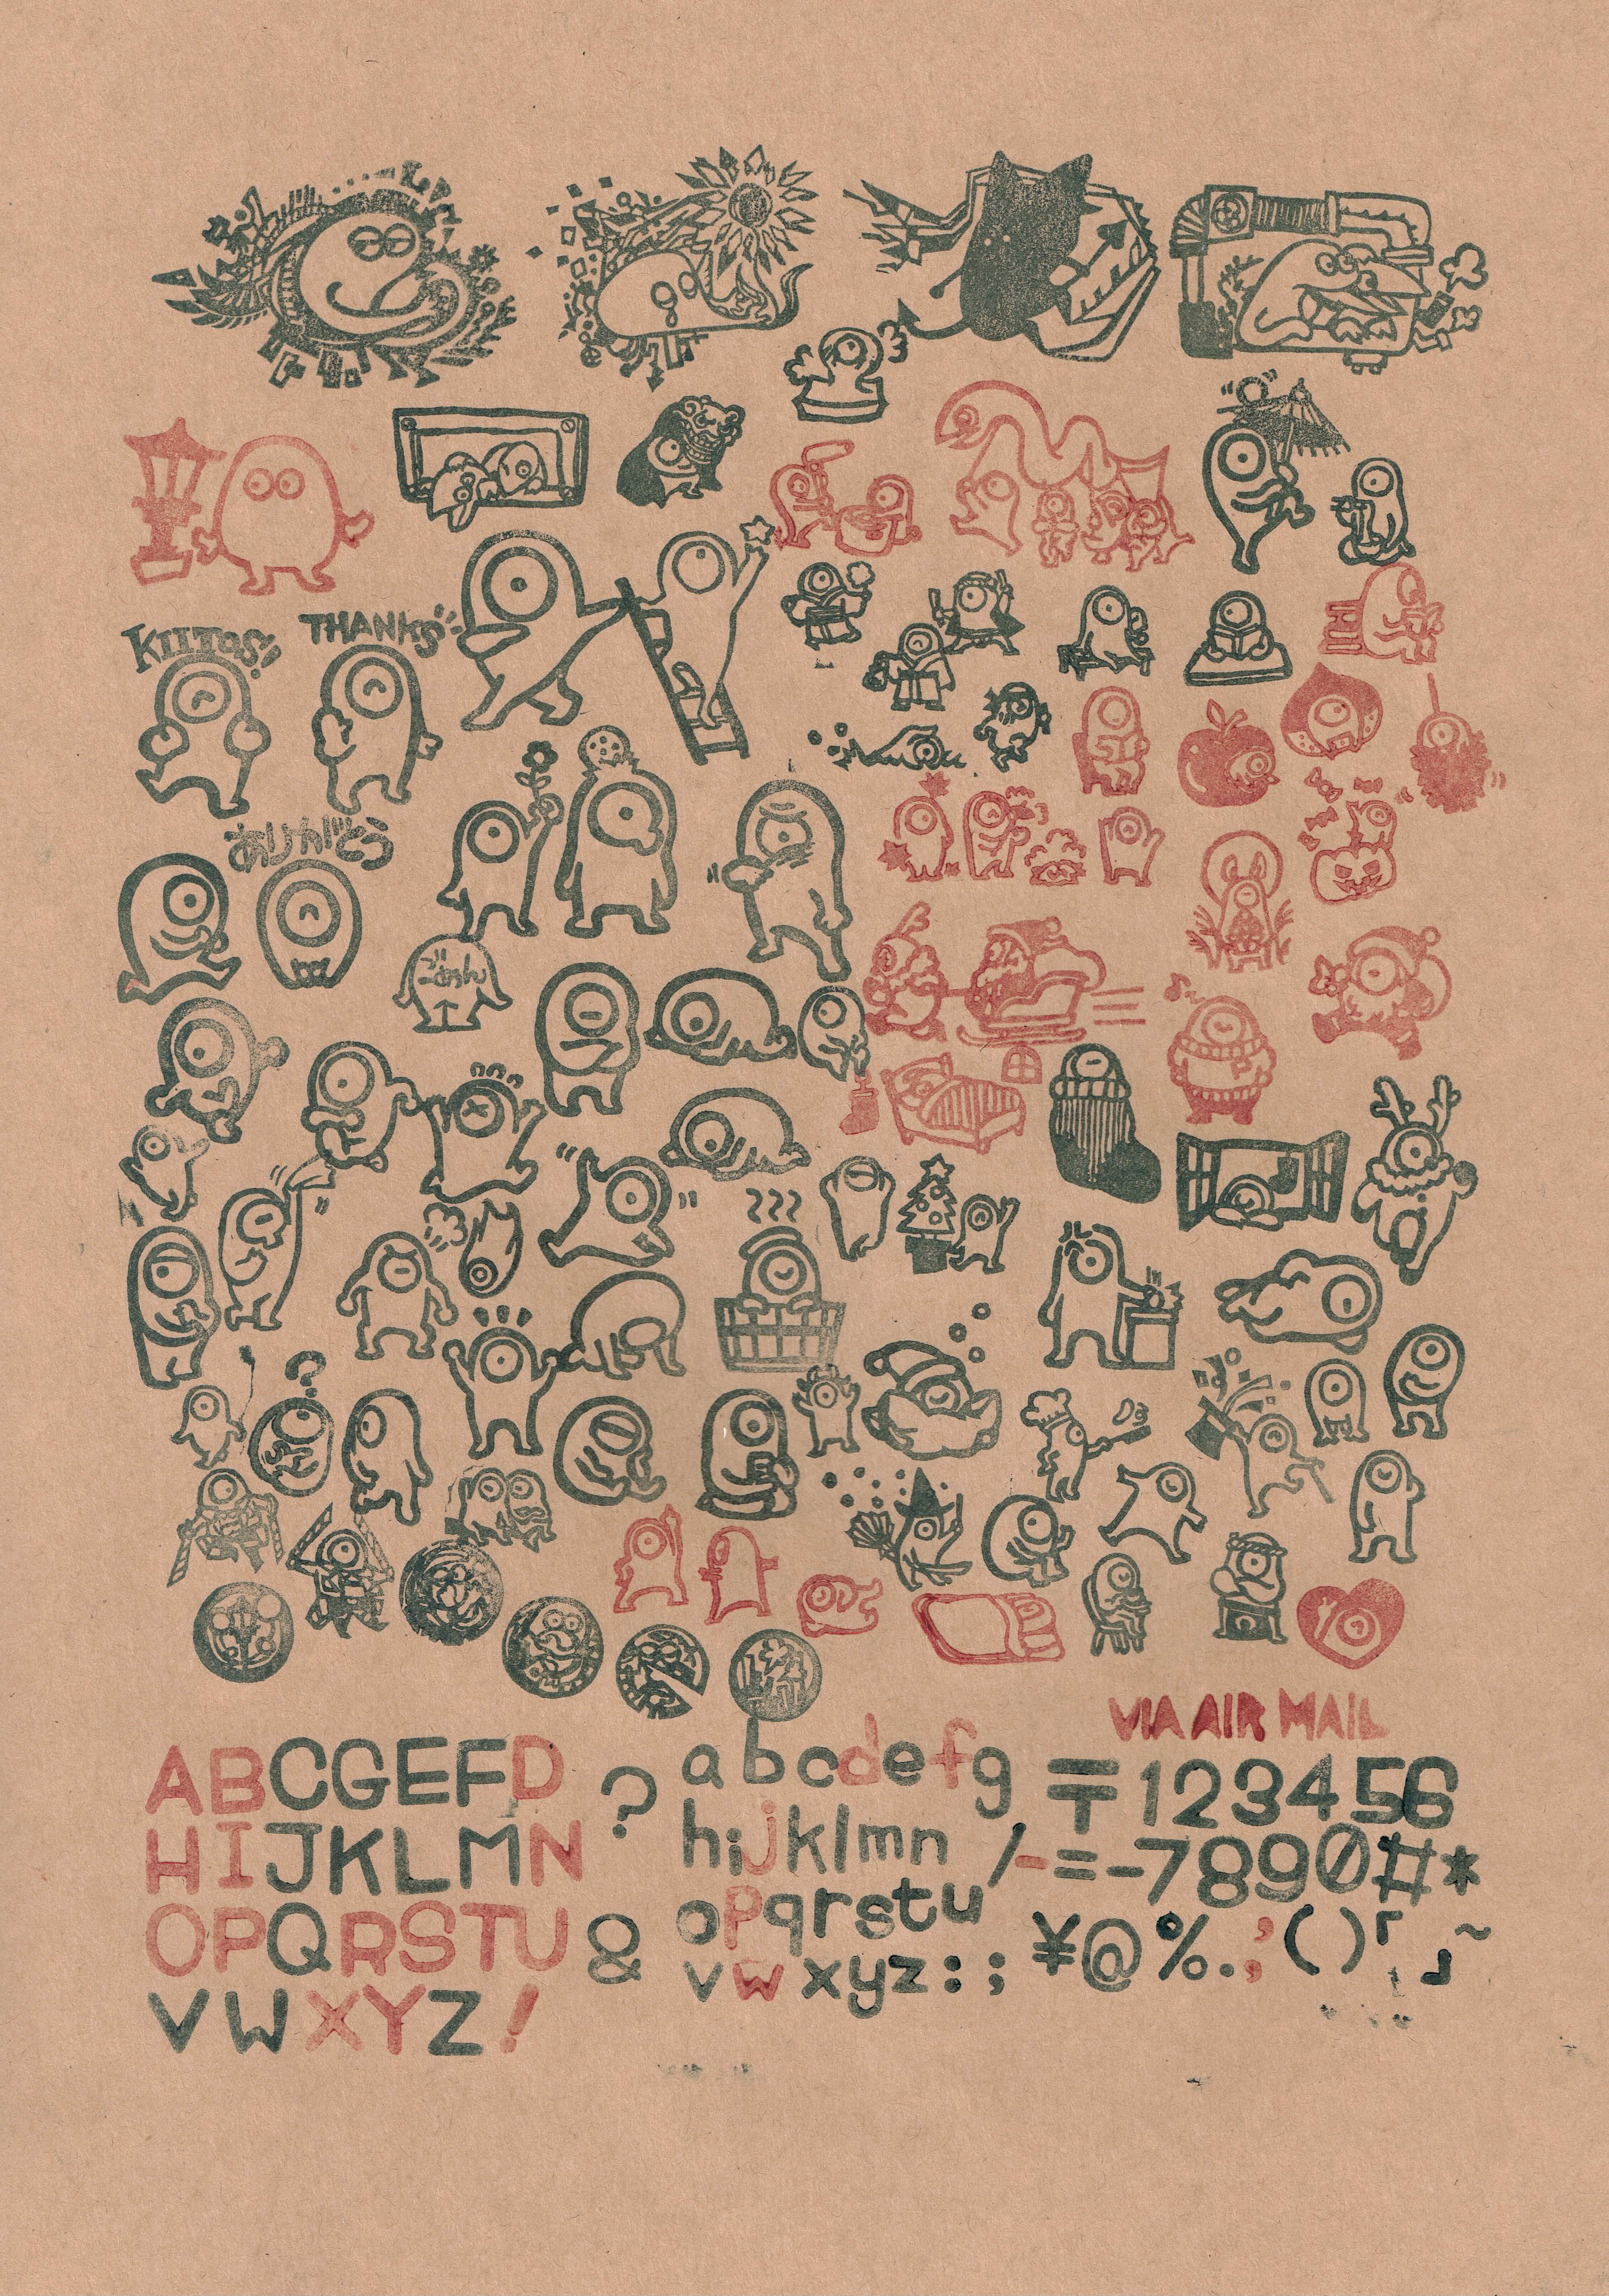 KIITOS!
THANKS
ありがとう
VIA AIR MAIL
ABCGEFD
HIJKLMN
OPQRSTU
VWXYZ!
?
&
abcdefg
hijklmn
opqrstu
vwxyz:;
〒123456
/-=-7890#*
¥@%.,()「」~